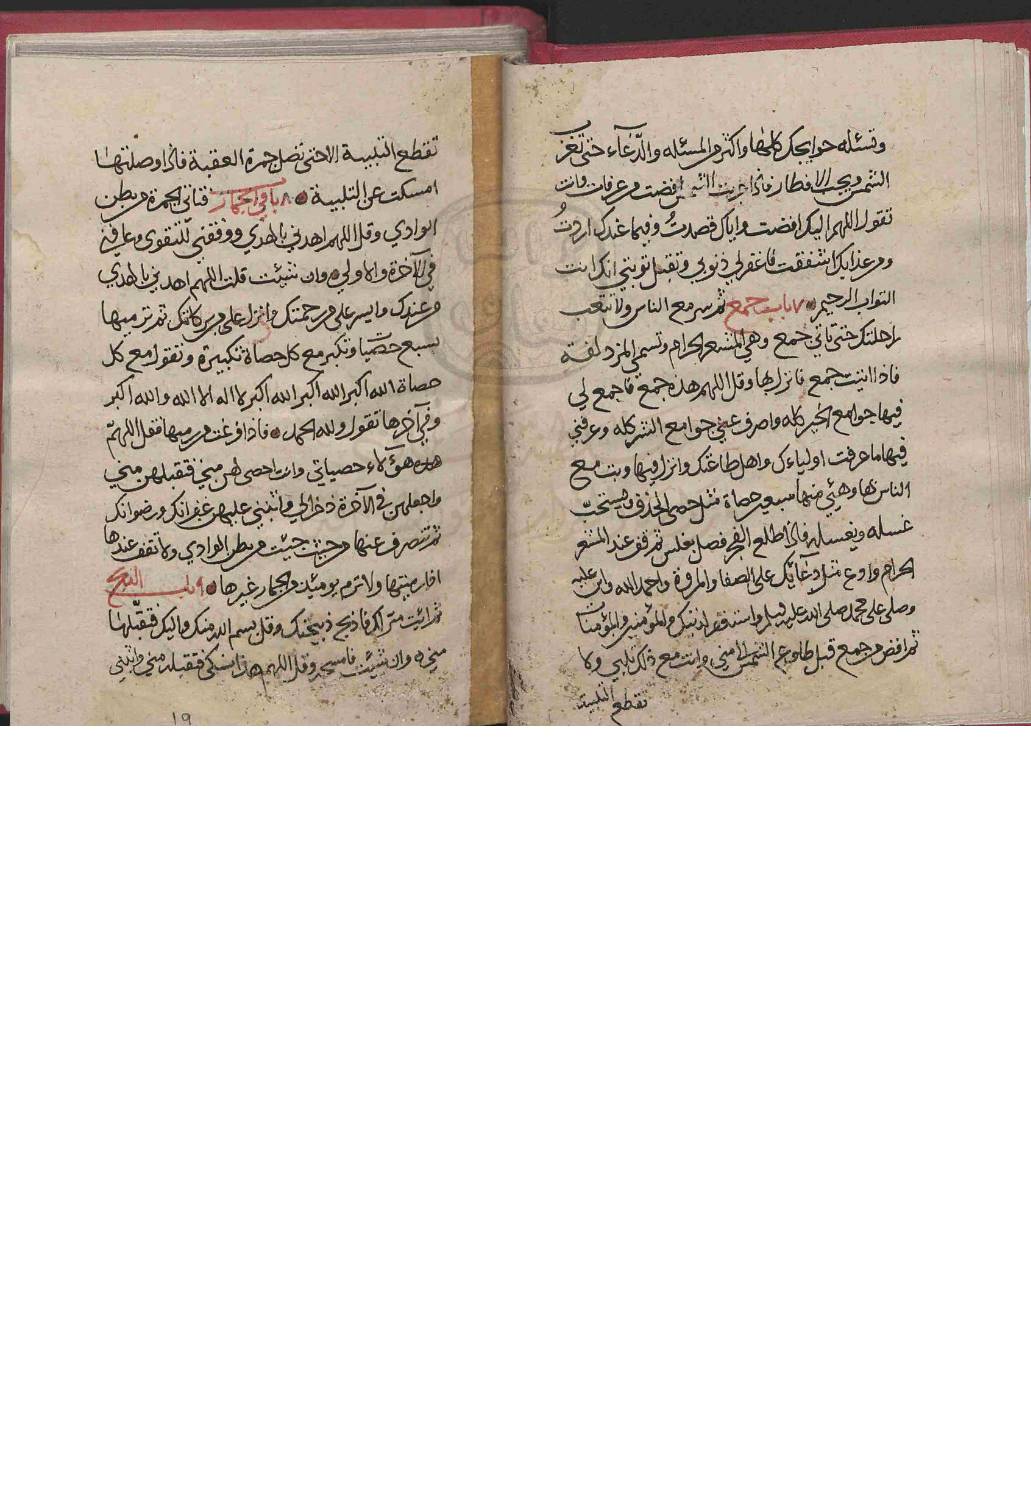 وتسئله حوايجك كلها واكثر من المسئله والدعآء حتى تغرب
الشمس ويجب الافطار فاذا غربت الشمس افضت من عرفات وانت
تقول اللهم اليك افضت واياك قصدت وفيما عندك اردتُ
ومن عذابك اشفقت فاغفرلي ذنوبي وتقبل توبتي انك انت
التواب الرحيم ٧ باب جمع ثم سر مع الناس ولا تتعب
راحلتك حتى تاتي جمع وهي المشعر الحرام وتسمى المزدلفة
فاذا اتيت جمع فانزل بها وقل اللهم هذه جمع فاجمع لي
فيها جوامع الخير كله واصرف عني جوامع الشر كله وعرفني
فيها ما عرفت اولياءك واهل طاعتك وانزل فيها وبت مع
الناس بها وهيّئ منها سبعين حصاة مثل حصى الخذف ويستحبّ
غسله ويغسله فاذا طلع الفجر فصل بغلس ثم قف عند المشعر
الحرام وادع مثل دعآئك على الصفا والمروة واحمد الله واثن عليه
وصلى على محمد صلى الله عليه وسلم واستغفر لذنبك وللمؤمنين والمؤمنات
ثم افض من جمع قبل طلوع الشمس الى منى وانت مع ذلك تلبي ولا
تقطع التلبية
تقطع التلبية الا حتى تصل جمرة العقبة فاذا وصلتها
امسكت عن التلبية ٨ باب في الجمار فتاتي الجمرة من بطن
الوادي وقل اللهم اهدني بالهدي ووفقني للتقوى وعافني
في الآخرة والاولى وان شئت قلت اللهم اهدني بالهدي
من عندك وايسر علي من رحمتك وانزل علي من بركاتك ثم ترميها
بسبع حصيا وتكبر مع كل حصاة تكبيرة وتقول مع كل
حصاة الله اكبر الله اكبر الله اكبر لا اله الا الله والله اكبر
وفي آخرها تقول ولله الحمد فاذا فرغت من رميها فقل اللهمّ
هؤلاء حصياتي وانت احصى لهن مني فتقبلهن مني
واجعلهن في الآخرة ذخرا لي واثبني عليهن غفرانك ورضوانك
ثم تنصرف عنها من حيث جيت من بطن الوادي ولا تقف عندها
اذا رميتها ولا ترم يومئذ من الجمار غيرها ٩ باب الذبح
ثم ائيت منزلك فاذبح ذبيحتك وقل بسم الله منك واليك فتقبّلها
مني وان شيت فامسح وقل اللهم هذا نسكي فتقبله مني واثبني
١٩